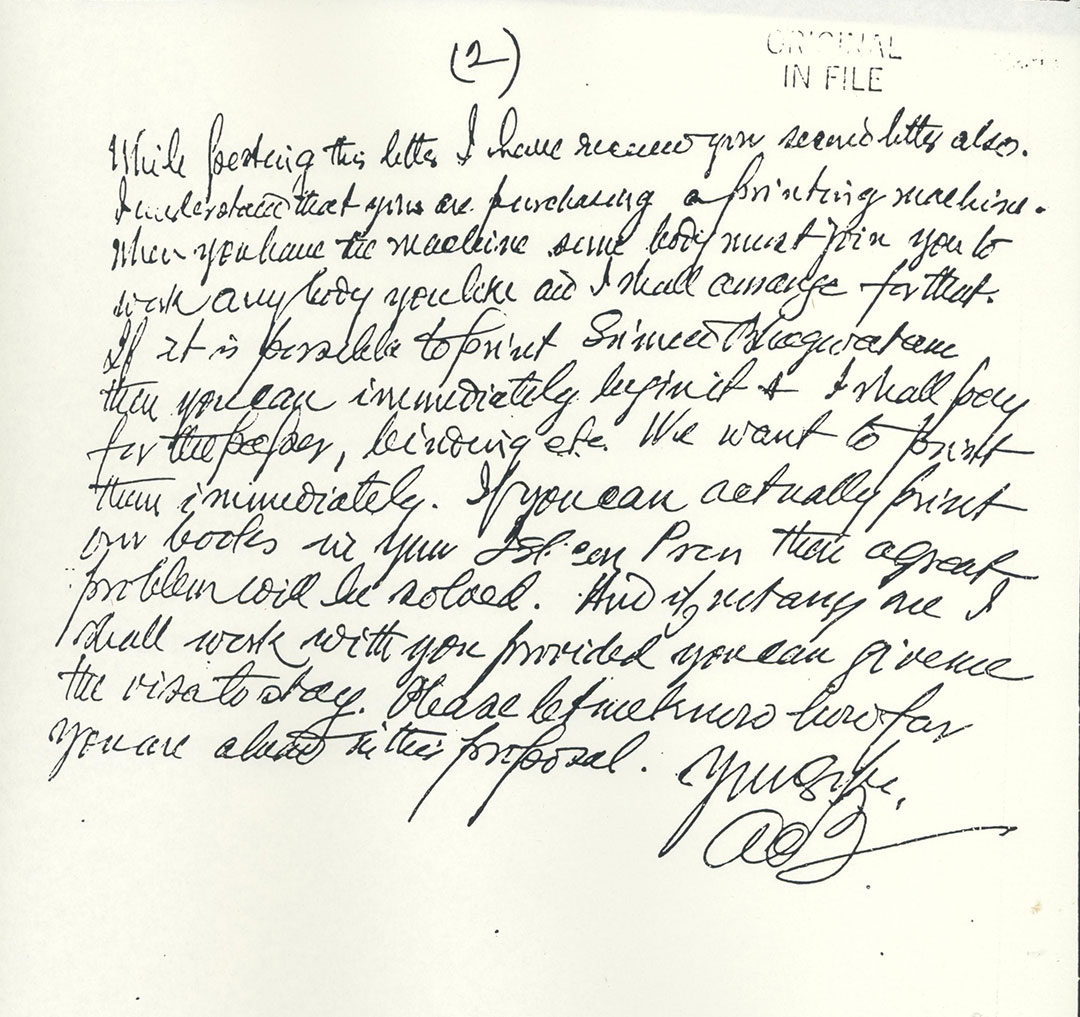 (2)
ORIGINAL
IN FILE
While posting this letter I have received your second letter also.
I understand that you are purchasing a printing machine.
When you have the machine some body must join you to
work any body you like and I shall arrange for that.
If it is possible to print Srimad Bhagwatam
then you can immediately begin it & I shall pay
for the paper, binding etc. We want to print
them immediately. If you can actually print
our books in your Press then a great
problem will be solved. And if not any one I
shall work with you provided you can give me
the visa to stay. Please let me know how far
you are ahead in this proposal.
ACB